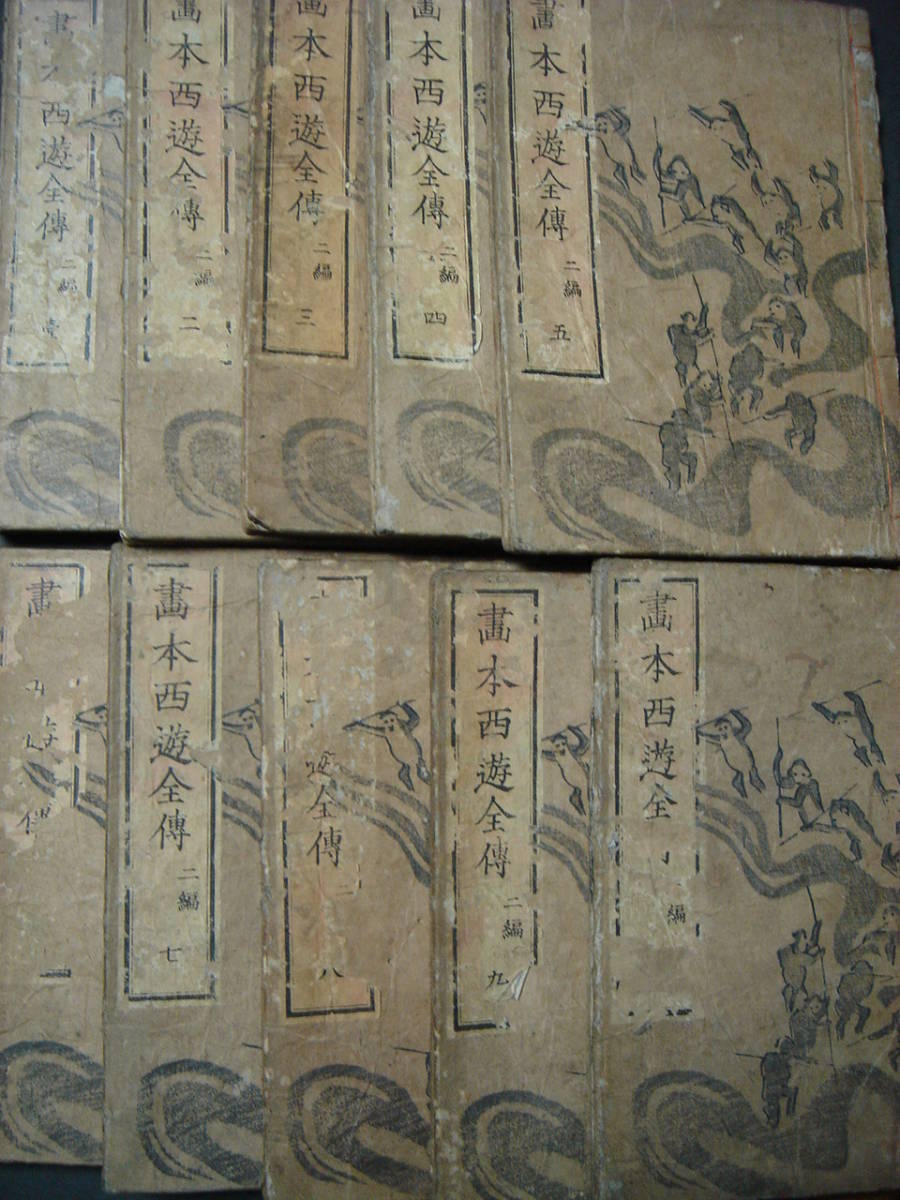 本西遊全傳
二編
畫本西遊全傳
二編
二
畫本西遊全傳
二編
三
畫本西遊全傳
二編
四
畫本西遊全傳
二編
五
畫
畫本西遊全傳
二編
七
遊全傳
二
八
畫本西遊全傳
二編
九
畫本西遊全
編